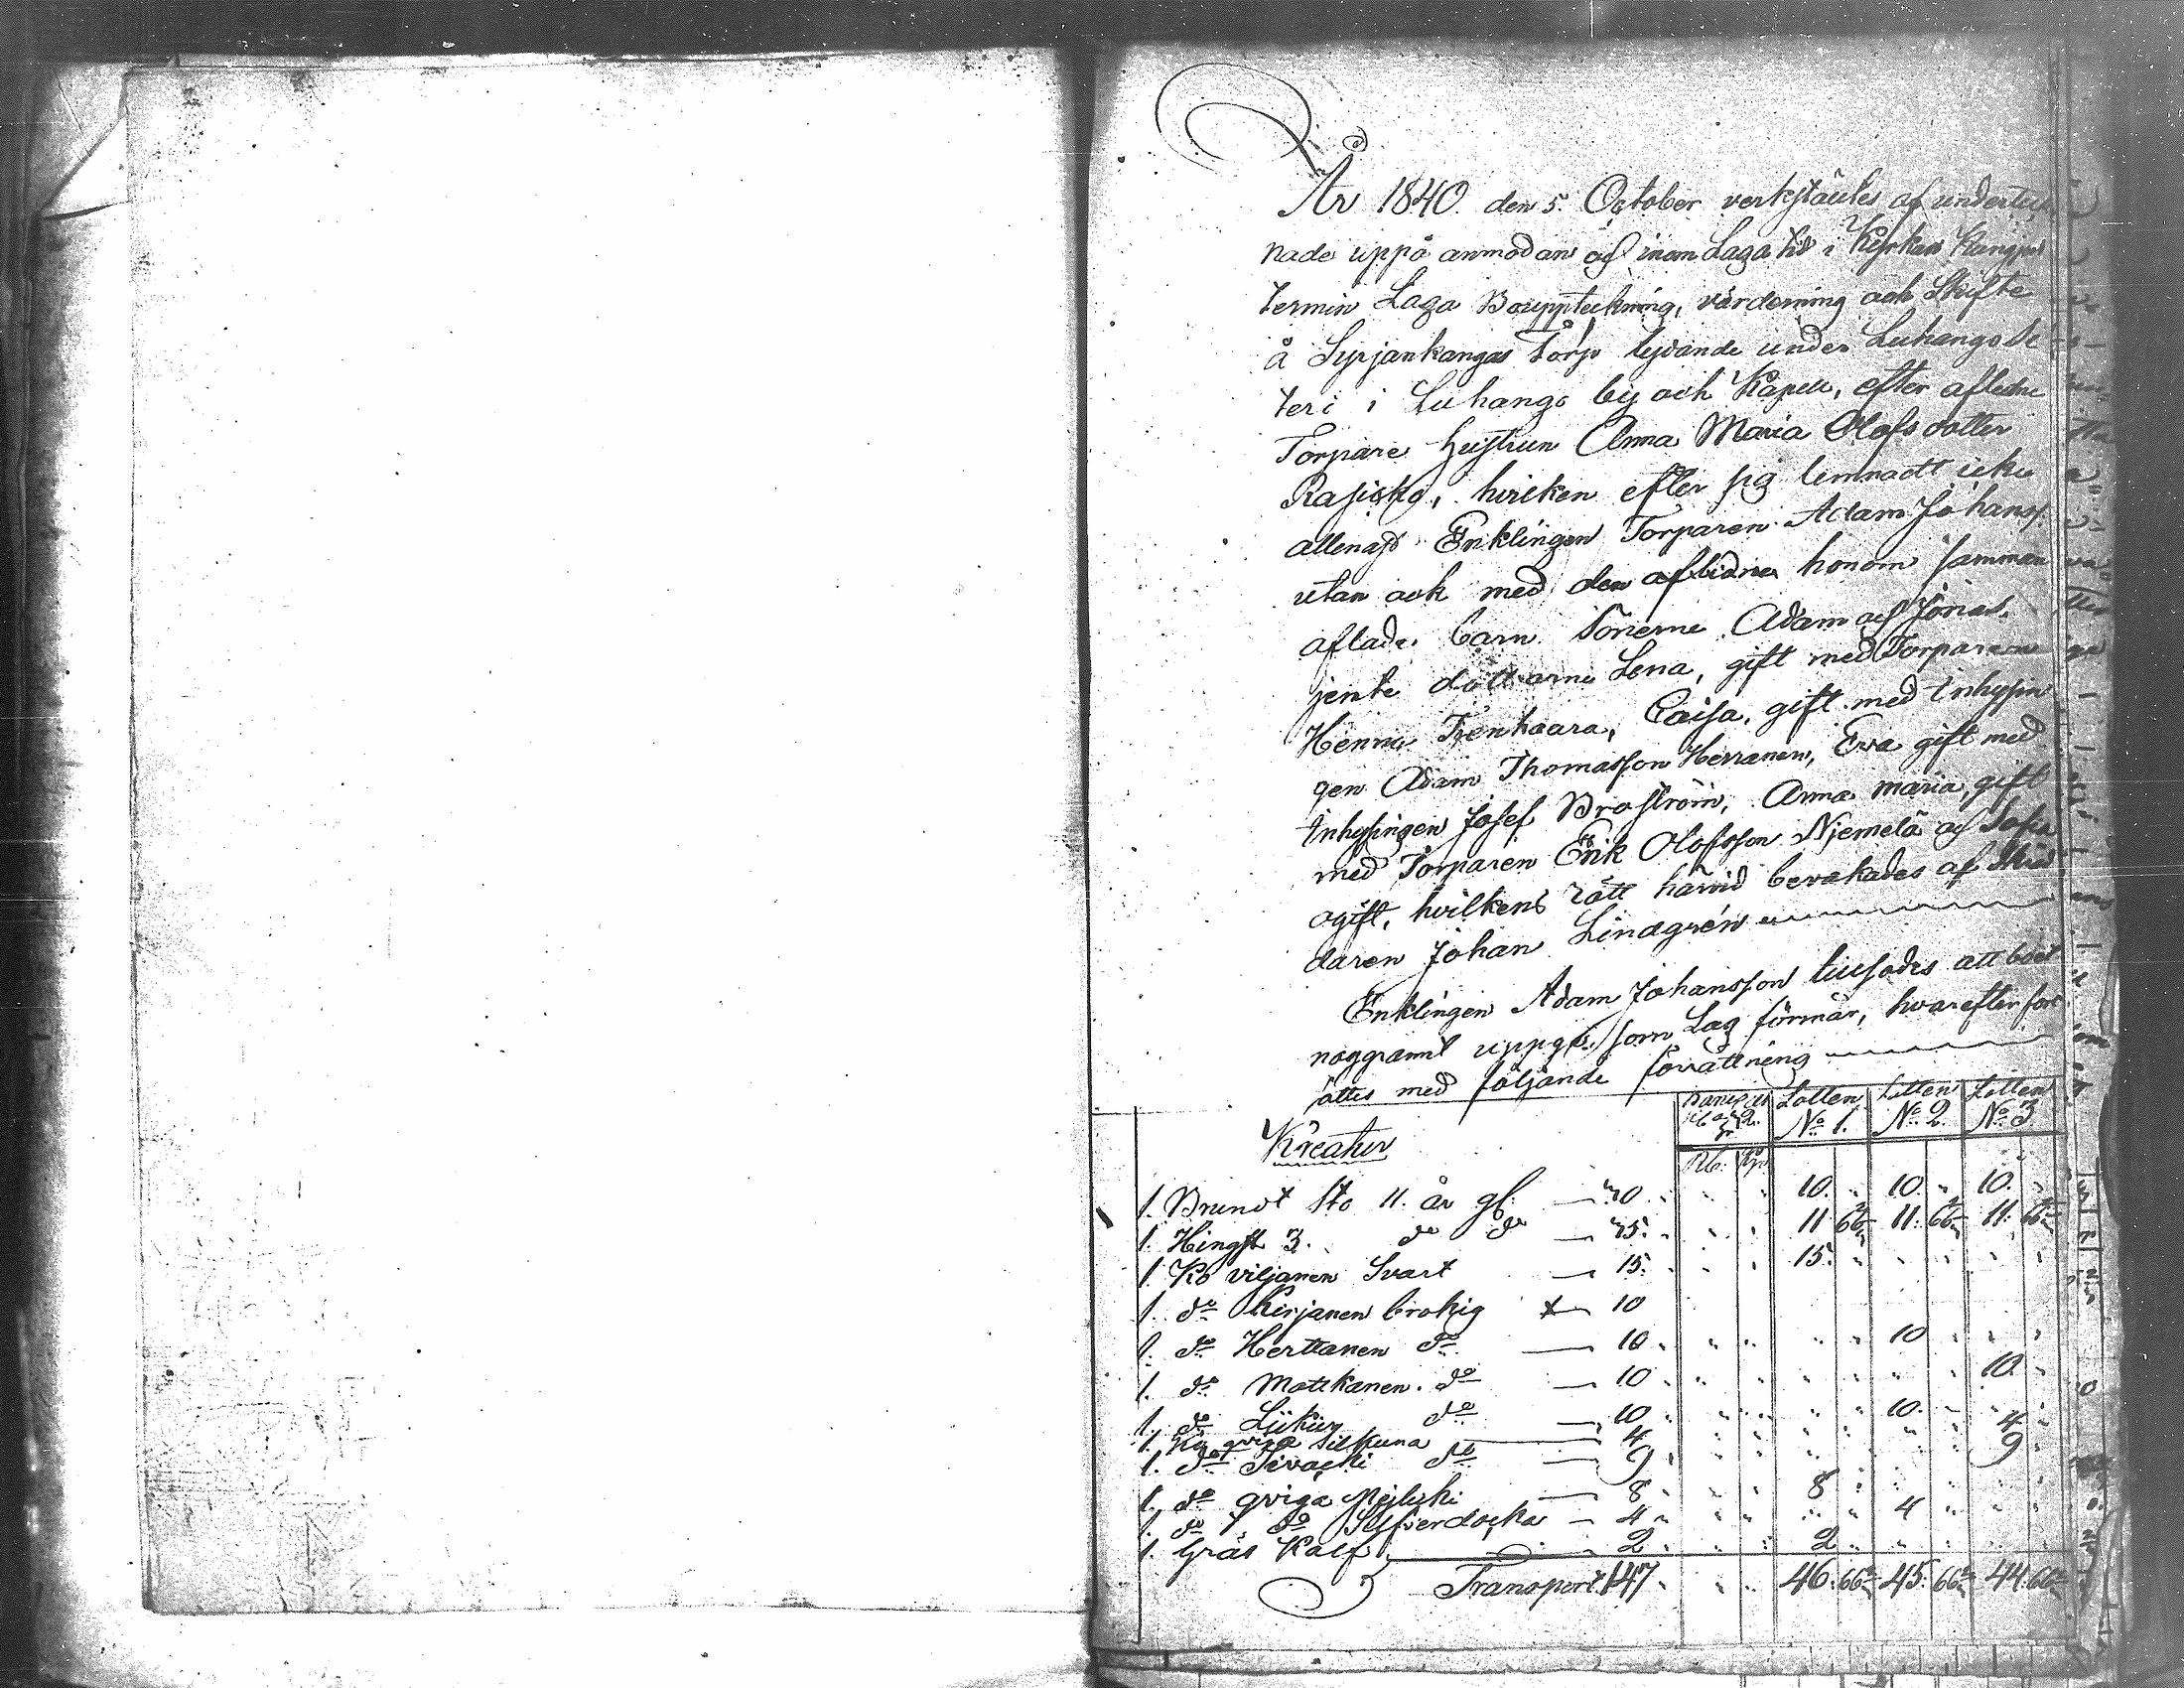 År 1840. den 5. October verkstäldes af underteck
nade uppå anmodan af inom Laga tid i Kyrkan
termin Laga Bouppteckning, värdering och Skifte
å Syrjankangas Torp lydande under Luhango Sä
teri i Luhango by och Kapell, efter aflidne
Torpare hustrun Anna Maria Olofsdotter
hvilken efter sig lemnadt icke
allenast Enklingen Torparen Adam Johans.
utan ock med den aflidna honom samman
aflade barn Sönerne Adam och Jonas,
jemte döttrarne Lena, gift med Torparen
Henric Caisa, gift med Inhysin
gen Adam Thomasson Herranen, Eva gift med
Inhysingen Josef Broström, Anna Maria, gift
med Torparen Erik Olofsson Njemelä och Sofia
ogift, hvilkens rätt härvid bevakades af Skräd
daren Johan Lindgrén
Enklingen Adam Johansson tillsades att boet
noggrannt uppge, som Lag förmår, hvarefter fort
sattes med följande förrättning
Lotten Lotten Lotten
Kreatur No 1. No 2. No 3.
Rb. Kp.
1. Brunt Sto 11. år gl. 30 10. " 10. " 10. "
1. Hingst 3. do do 35. 11 66 2/3 11. 66 2/3 11. 66 2/3
1. Ko viljanen Svart 15. 15.
1. do Kirjanen brokig x 10
1. do Herttanen do 10 10
1. do Mattkanen. do 10 10.
1. do do 10 10.
1. qviga Silkuna 4 4
1. do do 9 9
1. do qviga 8 8
1. do do Silfverdocka 4 4
1. Gräs Kalf 2 2
Transport 147 46. 66 2/3 45. 66 2/3 44. 66 2/3